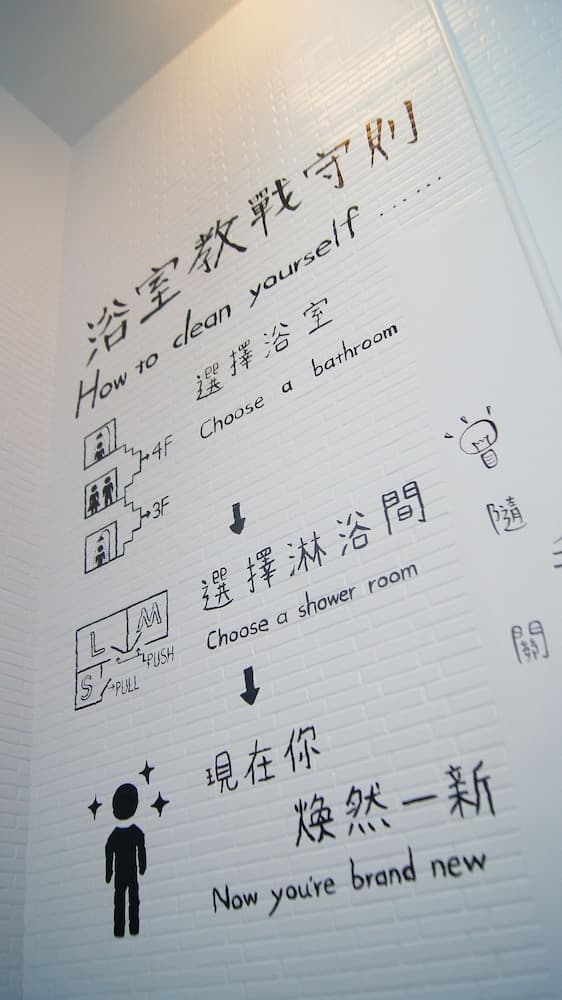 浴室教戰守則
How to clean yourself ......
選擇浴室
Choose a bathroom
4F
3F
選擇淋浴間
Choose a shower room
L M
PUSH
S PULL
現在你
煥然一新
Now you're brand new
隨
關